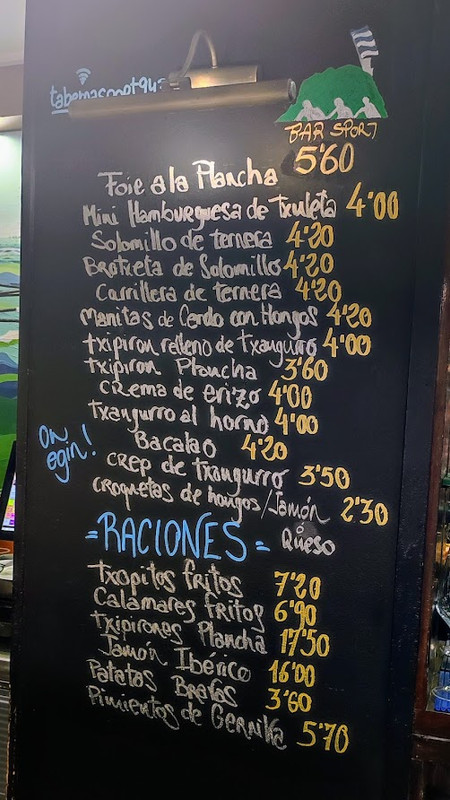 BAR SPORT
Foie a la Plancha 5'60
Mini Hamburguesa de Txuleta 4'00
Solomillo de ternera 4'20
Brotxeta de Solomillo 4'20
Carrillera de ternera 4'20
Manitas de Cerdo con Hongos 4'20
txipiron relleno de txangurro 4'00
txipiron Plancha 3'60
crema de erizo 4'00
txangurro al horno 4'00
Bacalao 4'20
crep de txangurro 3'50
croquetas de hongos/Jamón 2'30
Queso
On egin!
=RACIONES=
Txopitos fritos 7'20
Calamares fritos 6'90
Txipirones Plancha 17'50
Jamón Ibérico 16'00
Patatas Bravas 3'60
Pimientos de Gernika 5'70